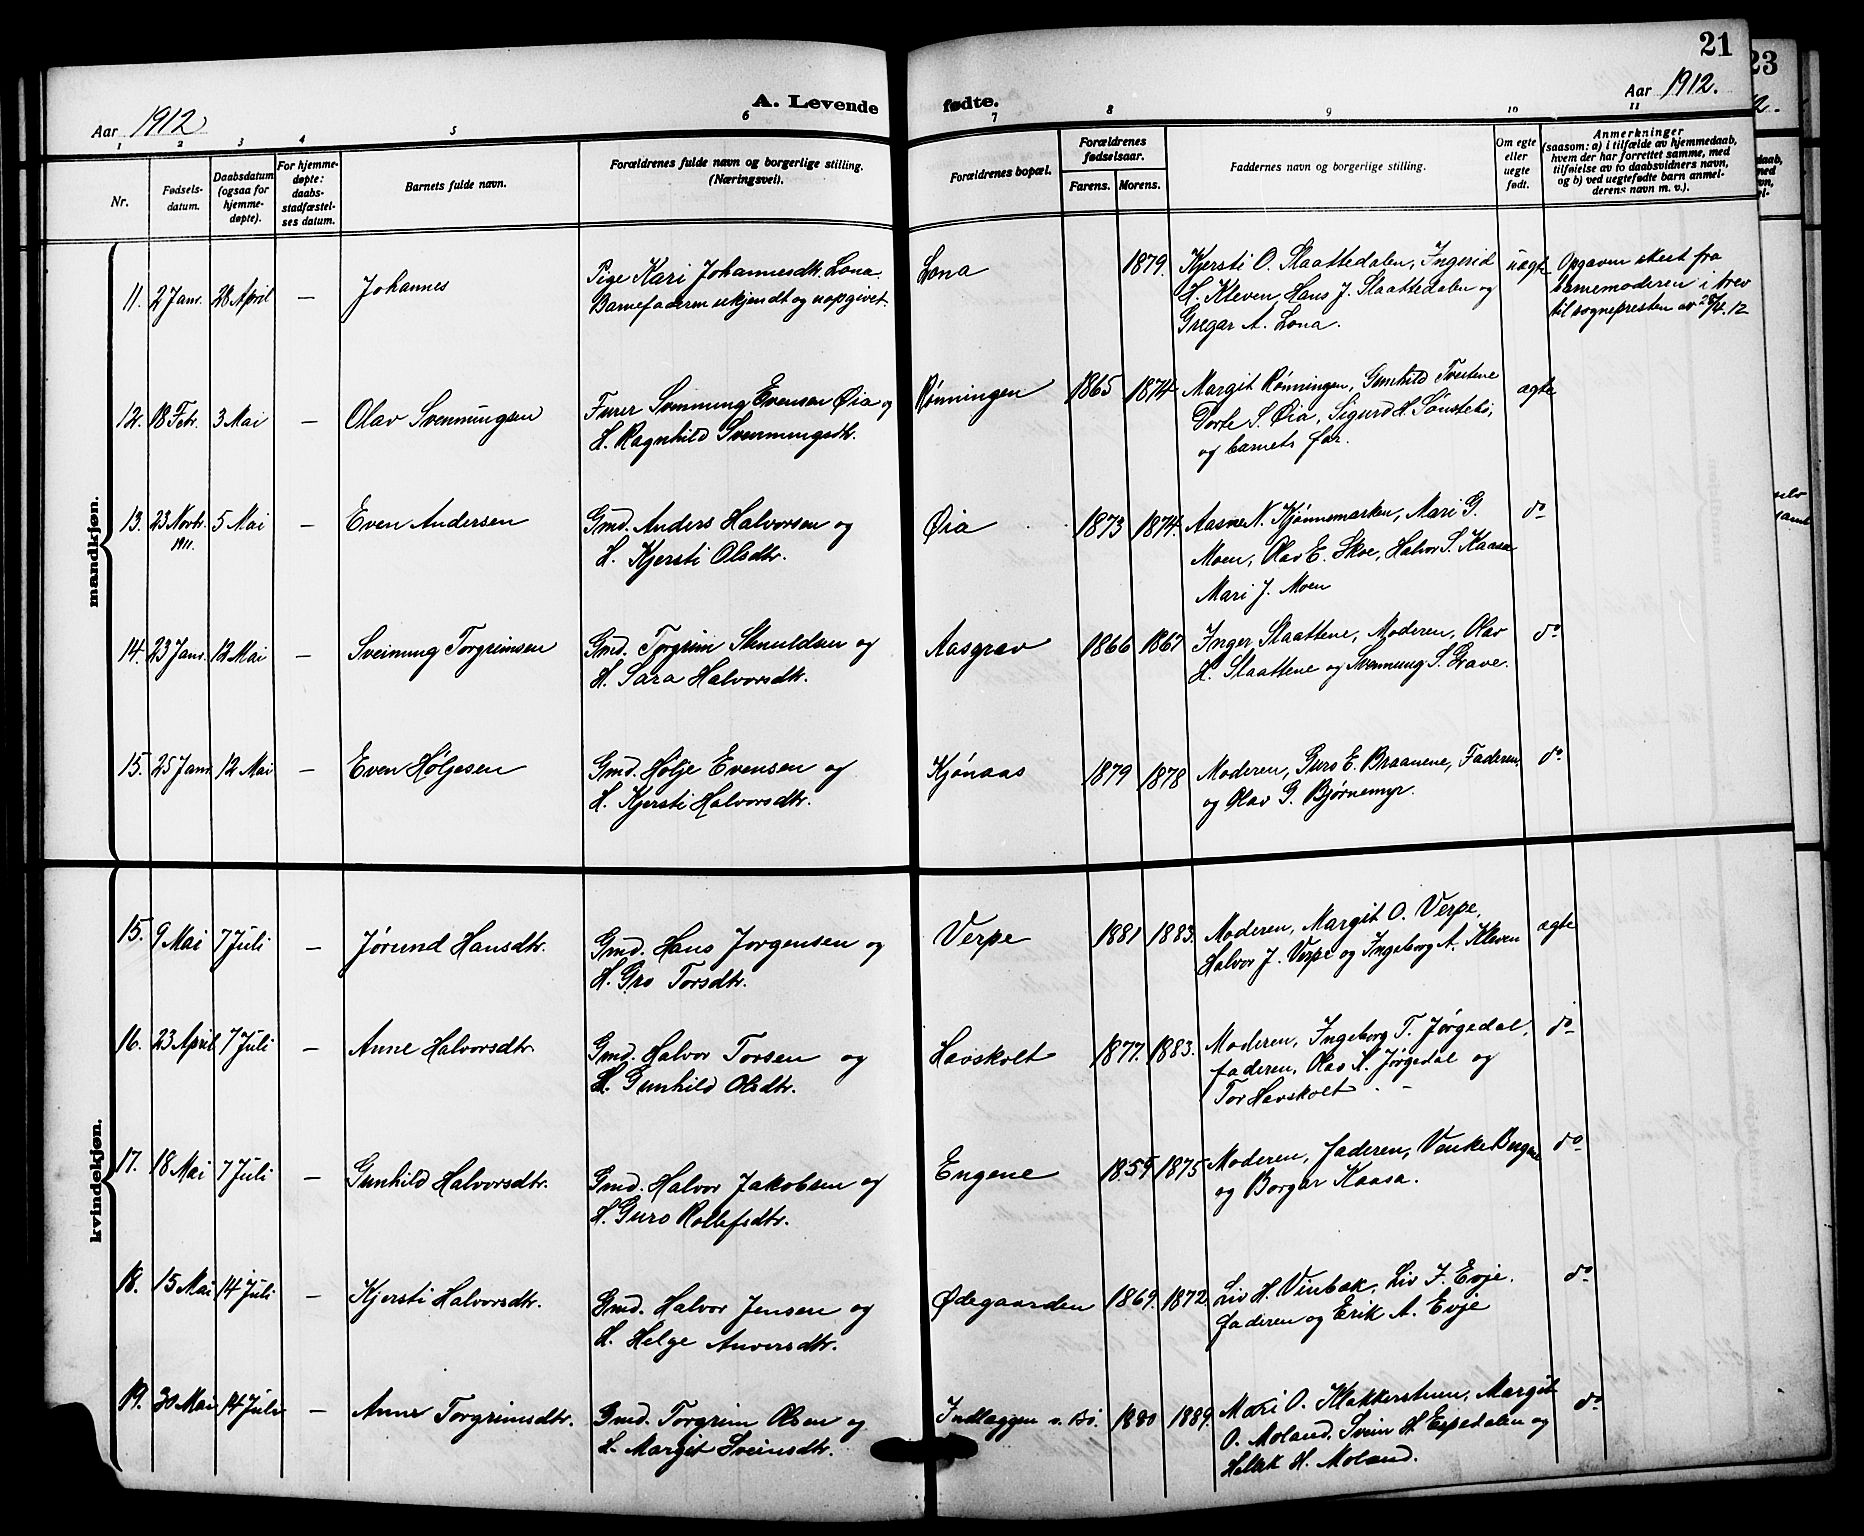 21
23
Aar 1912
A. Levende fødte.
Aar 1912.
1 2 3 4 5 6 7 8 9 10 11
Nr.
Fødsels-
datum.
Daabsdatum
(ogsaa for
hjemme-
døpte).
For hjemme-
døpte:
daabs-
stadfæstel-
ses datum.
Barnets fulde navn.
Forældrenes fulde navn og borgerlige stilling.
(Næringsvei).
Forældrenes bopæl.
Forældrenes
fødselsaar.
Farens. Morens.
Faddernes navn og borgerlige stilling.
Om egte
eller
uegte
født.
Anmerkninger
(saasom: a) i tilfælde av hjemmedaab,
hvem der har forrettet samme, med
tilføielse av to daabsvidners navn,
og b) ved uegtefødte barn anmel-
derens navn m. v.).
mandkjøn.
11. 2 Janr. 28 April — Johannes
Pige Kari Johannesdtr. Lona.
Barnefaderen ukjendt og uopgivet.
Lona 1879.
Kjersti O. Slaattedalen, Ingerid
H. Kleven, Hans J. Slaattedalen og
Gregar A. Lona.
uegte
Opgaven skeet fra
barnemoderen i brev
til sognepresten av 28/4.12
12. 18 Febr. 3 Mai — Olav Svenningsen
Furer Svennung Evensen Øia og
H. Ragnhild Svennungsdtr.
Rønningen 1865 1874
Margit Rønningen, Gunhild Tveitene
Dorte S. Øia, Sigurd H. Sønstebø,
og barnets far.
egte
13. 23 Novbr. 1911. 5 Mai — Even Andersen
Gmd. Anders Halvorsen og
H. Kjersti Olsdtr.
Øia 1873 1874.
Aasne N. Kjønnemarken, Mari G.
Moen, Olav E. Skoe, Halvor S. Kaasa
Mari J. Moen
do
14. 23 Janr. 12 Mai — Sveinung Torgrimsen
Gmd. Torgrim Stenuldsen og
H. Sara Halvorsdtr.
Aasgrav 1866 1867
Inger Slaattene, Moderen, Olav
H. Slaattene og Svennung S. Grave.
do
15. 25 Janr 12 Mai — Even Høljesen
Gmd. Hølje Evensen og
H. Kjersti Halvorsdtr.
Kjønaas 1879 1878
Moderen, Guro E. Braanene, Faderen
og Olav G. Bjørnemyr.
do
kvindekjøn.
15. 9 Mai 7 Juli — Jørund Hansdtr.
Gmd. Hans Jorgensen og
H. Gro Torsdtr.
Verpe 1881 1883.
Moderen, Margit O. Verpe,
Halvor J. Verpe og Ingeborg A. Kleven
egte
16. 23 April 7 Juli — Anne Halvorsdtr
Gmd. Halvor Torsen og
H. Gunhild Olsdtr.
Havskolt 1877. 1883.
Moderen, Ingeborg T. Jørgedal,
faderen, Olav N. Jørgedal og
Tor Havskolt
do
17. 18 Mai 7 Juli — Gunhild Halvorsdtr.
Gmd. Halvor Jakobsen og
H. Guro Rollefsdtr.
Engene 1855 1875
Moderen, Faderen, Venke Bugne
og Borgar Kaasa.
do
18. 15 Mai 14 Juli — Kjersti Halvorsdtr.
Gmd. Halvor Jensen og
H. Helge Anversdtr.
Ødegaarden 1869. 1872.
Liv H. Vinbak, Liv J. Evje.
faderen og Erik A. Evje
do
19. 30 Mai 14 Juli — Anne Torgrimsdtr.
Gmd. Torgrim Olsen og
H. Margit Sveinsdtr.
Indlæggen v. Bø. 1880 1889.
Mari O. Klokkerstuen, Margit
O. Moland, Svein H. Espedalen og
Hellek H. Moland.
do